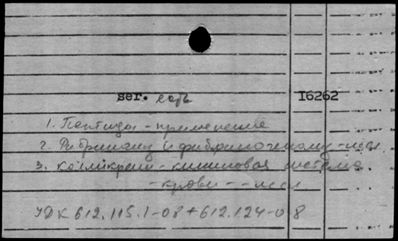 ser. есть I6262
1. Пептиды - применение
2. Фибриноген и фибринолизину - иссл
3. Калликреин - кининовая система
- крови - - иссл
УДК 612.115.1-08+612.124-08